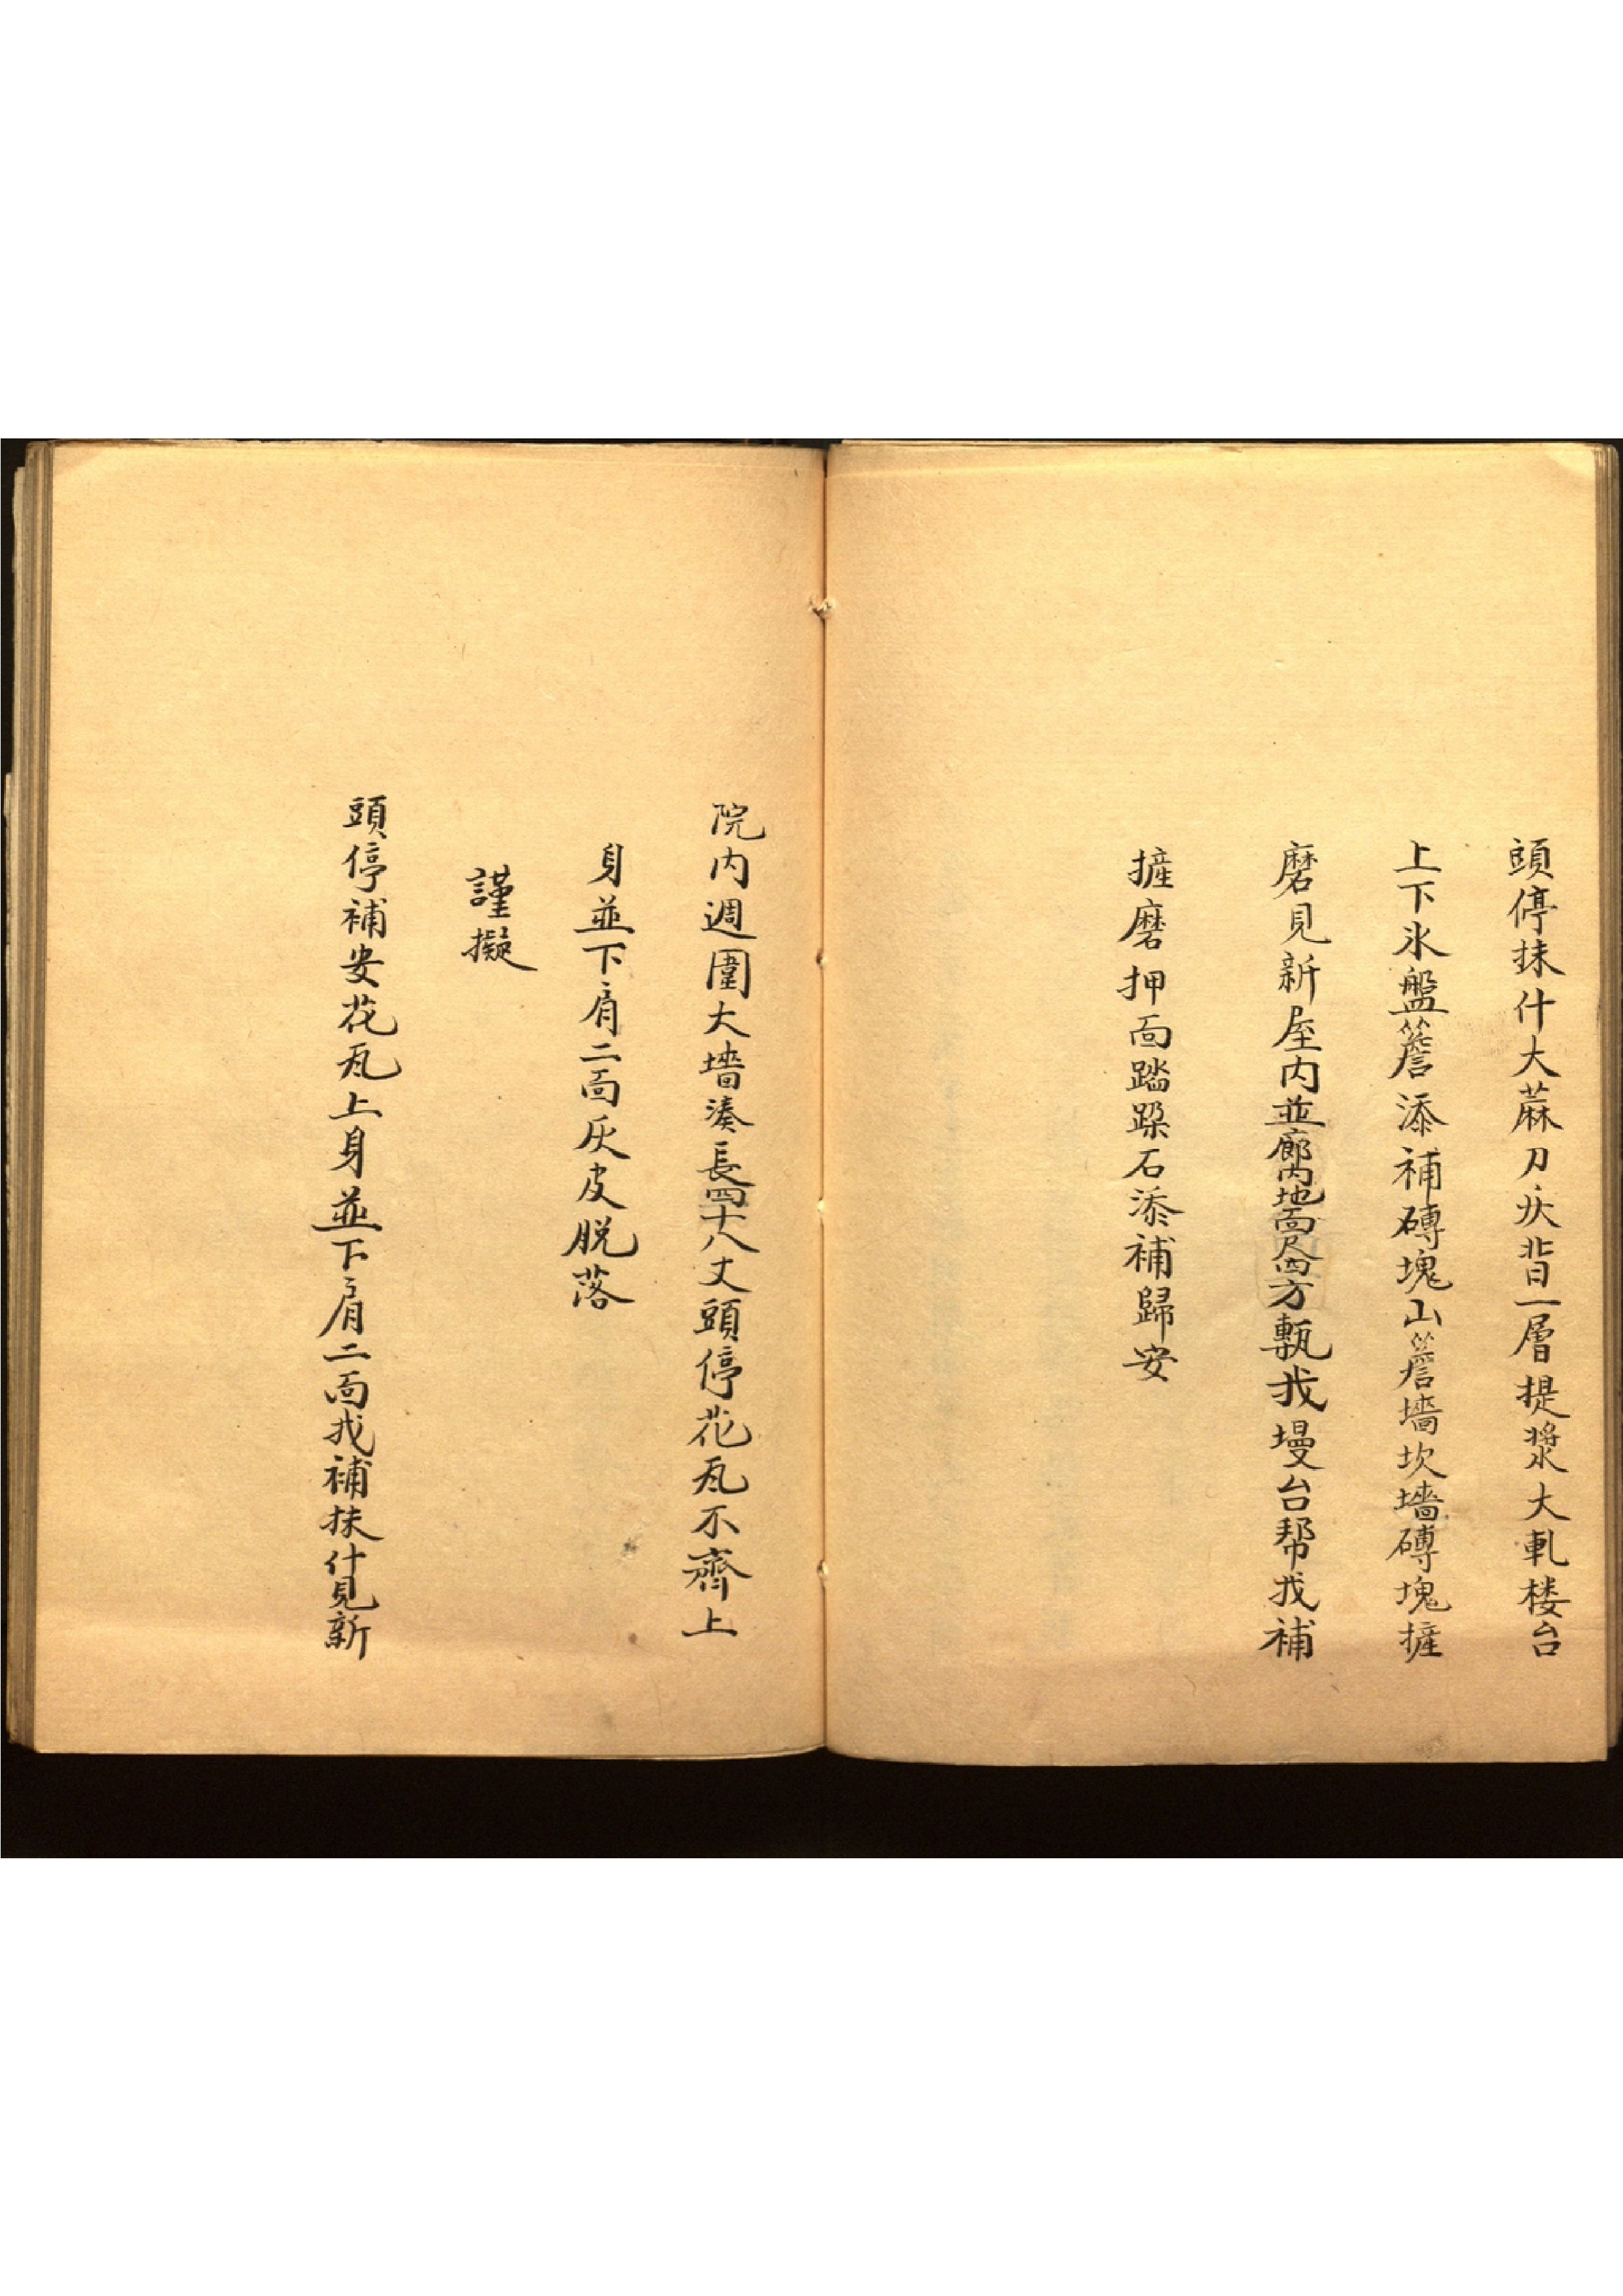 頭停抹什大蔴刀灰背一層提漿大軋楼台
上下氷盤簷添補磚塊山簷墻坎墻磚塊摌
磨見新屋内並廊内地面尺四方甎找墁台帮找補
摌磨押面踏跺石添補歸安
院内週圍大墻湊長四十八丈頭停花瓦不齊上
身並下肩二面灰皮脱落
謹擬
頭停補安花瓦上身並下肩二面找補抹什見新